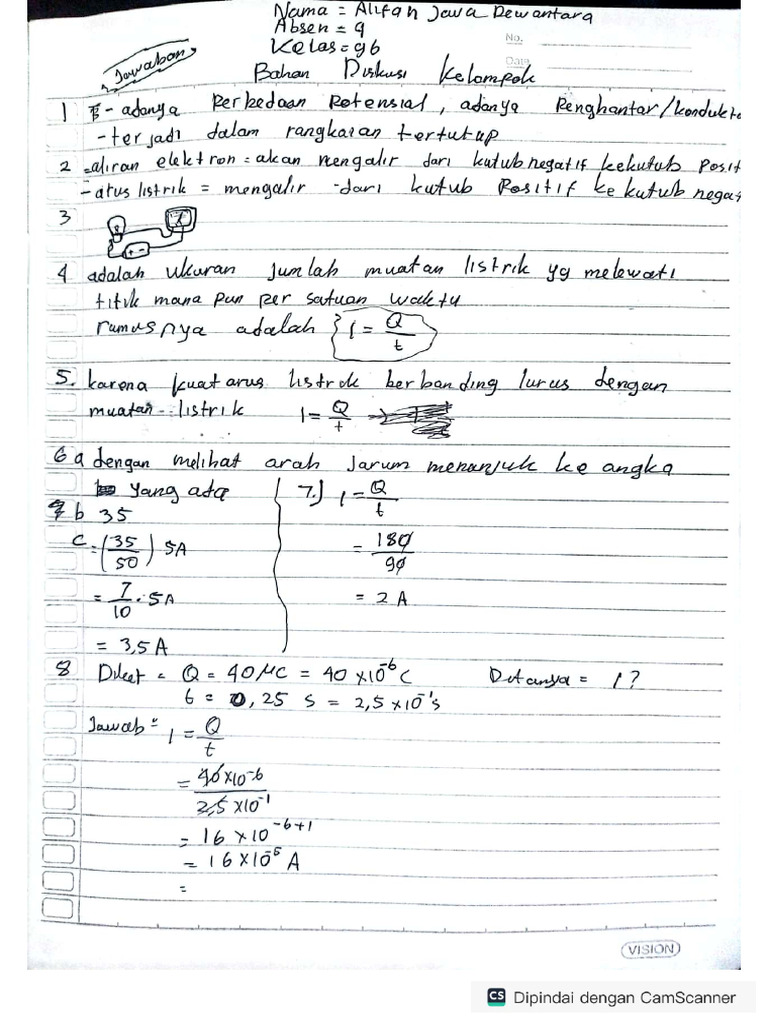 Nama = Alifah Jawa Dewantara
Absen = 9
Kelas = 9b
No.
Date
Jawaban
Bahan Diskusi Kelompok
1 - adanya Perbedaan Potensial, adanya Penghantar/kondukto
- terjadi dalam rangkaian tertutup
2 = aliran elektron = akan mengalir dari kutub negatif kekutub Posit
- arus listrik = mengalir dari kutub Positif ke kutub negat
3
4 adalah ukuran jumlah muatan listrik yg melewati
titik mana pun per satuan waktu
rumusnya adalah I = Q/t
5. karena kuat arus listrok berbanding lurus dengan
muatan listrik I = Q/t →
6 a dengan melihat arah Jarum menunjuk ke angka
yang ada
b 35
c = (35/50) 5A
= 7/10 . 5A
= 3,5 A
7.) I = Q/t
= 180/90
= 2 A
8 Diket = Q = 40 µC = 40 x 10⁻⁶ C Ditanya = I ?
t = 0,25 s = 2,5 x 10⁻¹ s
Jawab = I = Q/t
= 40 x 10⁻⁶ / 2,5 x 10⁻¹
= 16 x 10⁻⁶⁺¹
= 16 x 10⁻⁵ A
=
VISION
CS Dipindai dengan CamScanner